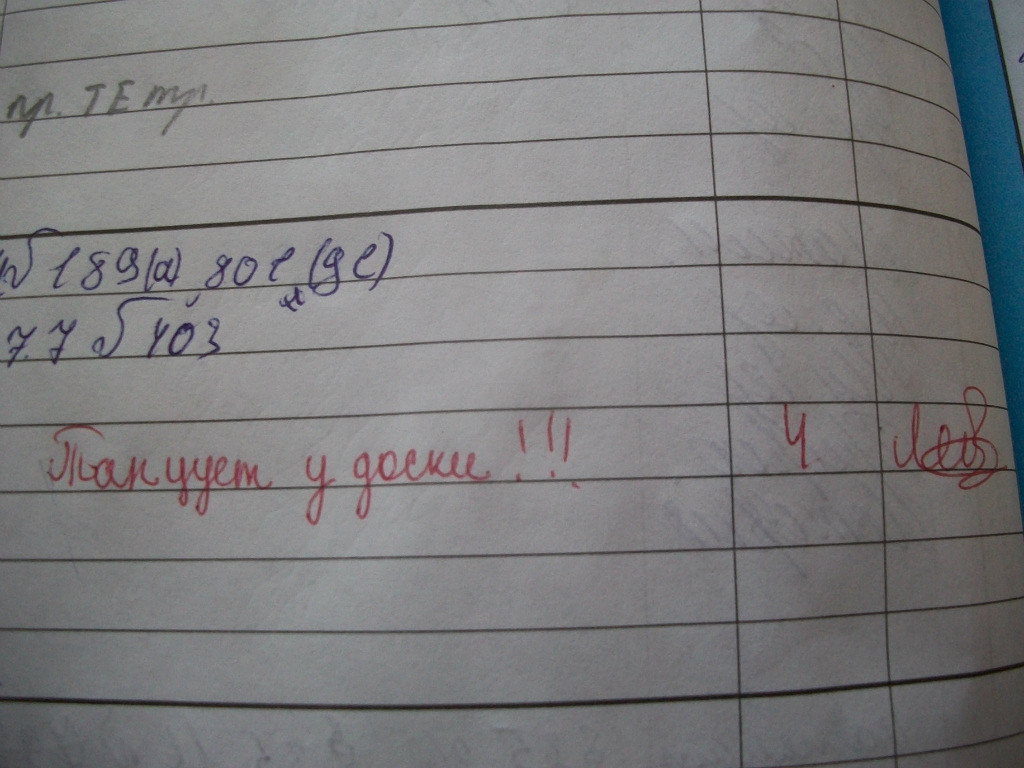 пр. ТЕтр.
√189(а) 80 е (g e)
7.7 √403
Танцует у доски!!! 4